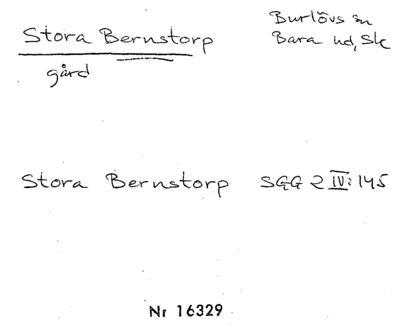 Stora Bernstorp
Burlövs sn
Bara hd, Sk
gård
Stora Bernstorp SGG 2 IV: 145
Nr 16329